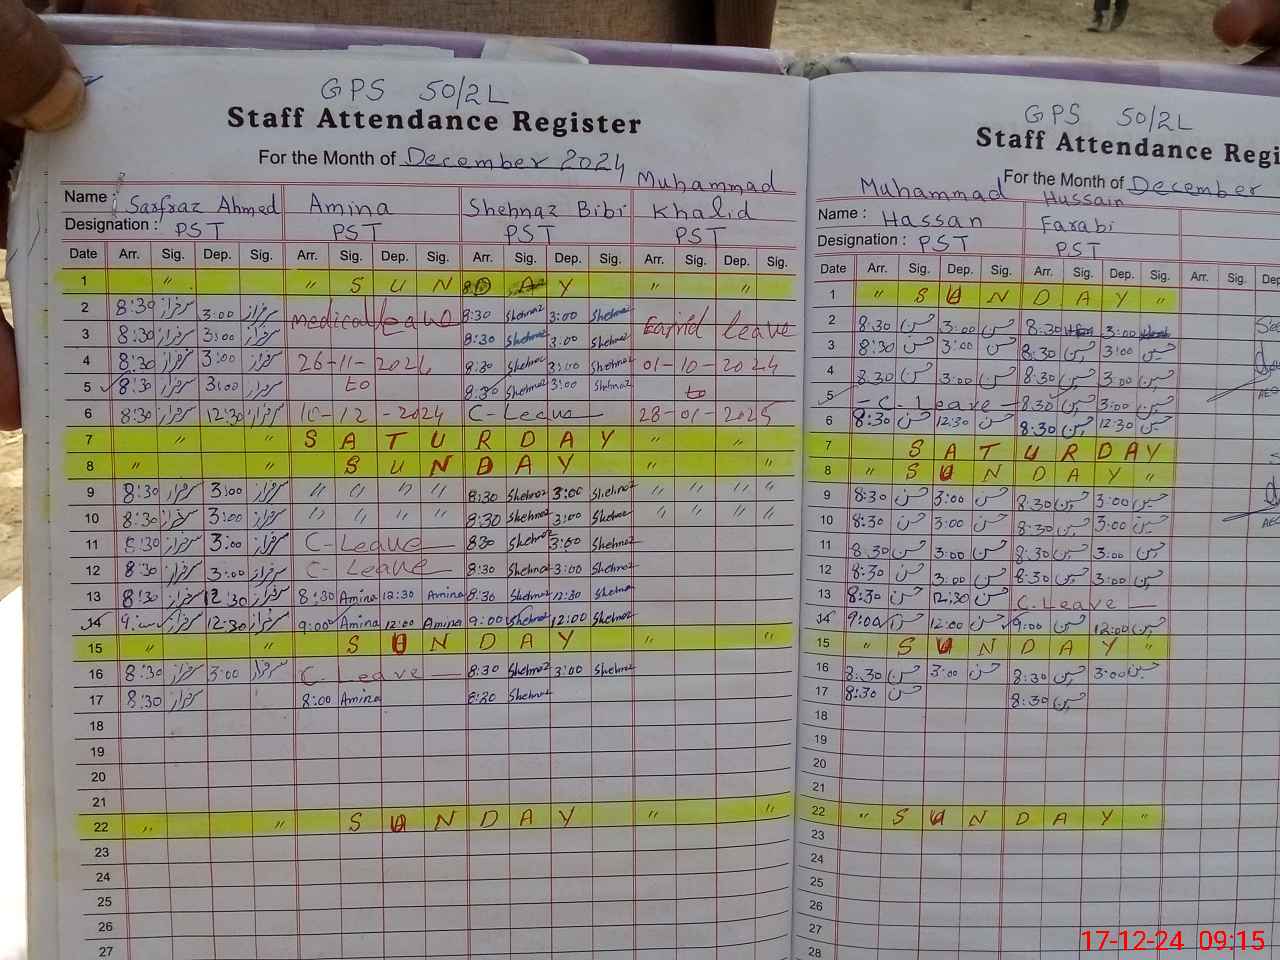 GPS 50/2L
Staff Attendance Register
For the Month of December 2024
Name : Sarfraz Ahmed Amina Shehnaz Bibi Muhammad Khalid
Designation : PST PST PST PST
Date Arr. Sig. Dep. Sig. Arr. Sig. Dep. Sig. Arr. Sig. Dep. Sig. Arr. Sig. Dep. Sig.
1 " " S U N D A Y " "
2 8:30 سرفراز 3:00 سرفراز medical leave 8:30 Shehnaz 3:00 Shehnaz leave
3 8:30 سرفراز 3:00 سرفراز 8:30 Shehnaz 3:00 Shehnaz
4 8:30 سرفراز 3:00 سرفراز 26-11-2024 8:30 Shehnaz 3:00 Shehnaz 01-10-2024
5 8:30 سرفراز 3:00 سرفراز to 8:30 Shehnaz 3:00 Shehnaz to
6 8:30 سرفراز 12:30 سرفراز 10-12-2024 C-Leave 28-01-2025
7 " " S A T U R D A Y " "
8 " " S U N D A Y " "
9 8:30 سرفراز 3:00 سرفراز " " " " 8:30 Shehnaz 3:00 Shehnaz " " " "
10 8:30 سرفراز 3:00 سرفراز " " " " 8:30 Shehnaz 3:00 Shehnaz " " " "
11 8:30 سرفراز 3:00 سرفراز C-Leave 830 Shehnaz 3:00 Shehnaz
12 8:30 سرفراز 3:00 سرفراز C-Leave 8:30 Shehnaz 3:00 Shehnaz
13 8:30 سرفراز 12:30 سرفراز 8:30 Amina 12:30 Amina 8:30 Shehnaz 12:30 Shehnaz
14 9:00 سرفراز 12:30 سرفراز 9:00 Amina 12:00 Amina 9:00 Shehnaz 12:00 Shehnaz
15 " " S U N D A Y " "
16 8:30 سرفراز 3:00 سرفراز C-Leave 8:30 Shehnaz 3:00 Shehnaz
17 8:30 سرفراز 8:00 Amina 8:20 Shehnaz
18
19
20
21
22 " " S U N D A Y " "
23
24
25
26
27
GPS 50/2L
Staff Attendance Regi
For the Month of December
Name : Muhammad Hassan Hussain Farabi
Designation : PST PST
Date Arr. Sig. Dep. Sig. Arr. Sig. Dep. Sig. Arr. Sig. De
1 " S U N D A Y "
2 8:30 حسن 3:00 حسن 8:30 3:00
3 8:30 حسن 3:00 حسن 8:30 حسین 3:00 حسین
4 8:30 حسن 3:00 حسن 8:30 حسین 3:00 حسین
5 -C-Leave- 8:30 حسین 3:00 حسین
6 8:30 حسن 12:30 حسن 8:30 حسین 12:30 حسین
7 S A T U R D A Y
8 " S U N D A Y "
9 8:30 حسن 3:00 حسن 8:30 حسین 3:00 حسین
10 8:30 حسن 3:00 حسن 8:30 حسین 3:00 حسین
11 8:30 حسن 3:00 حسن 8:30 حسین 3:00 حسین
12 8:30 حسن 3:00 حسن 8:30 حسین 3:00 حسین
13 8:30 حسن 12:30 حسن C-Leave
14 9:00 حسن 12:00 حسن 9:00 حسین 12:00 حسین
15 " S U N D A Y "
16 8:30 حسن 3:00 حسن 8:30 حسین 3:00 حسین
17 8:30 حسن 8:30 حسین
18
19
20
21
22 " S U N D A Y "
23
24
25
26
27
28
17-12-24 09:15